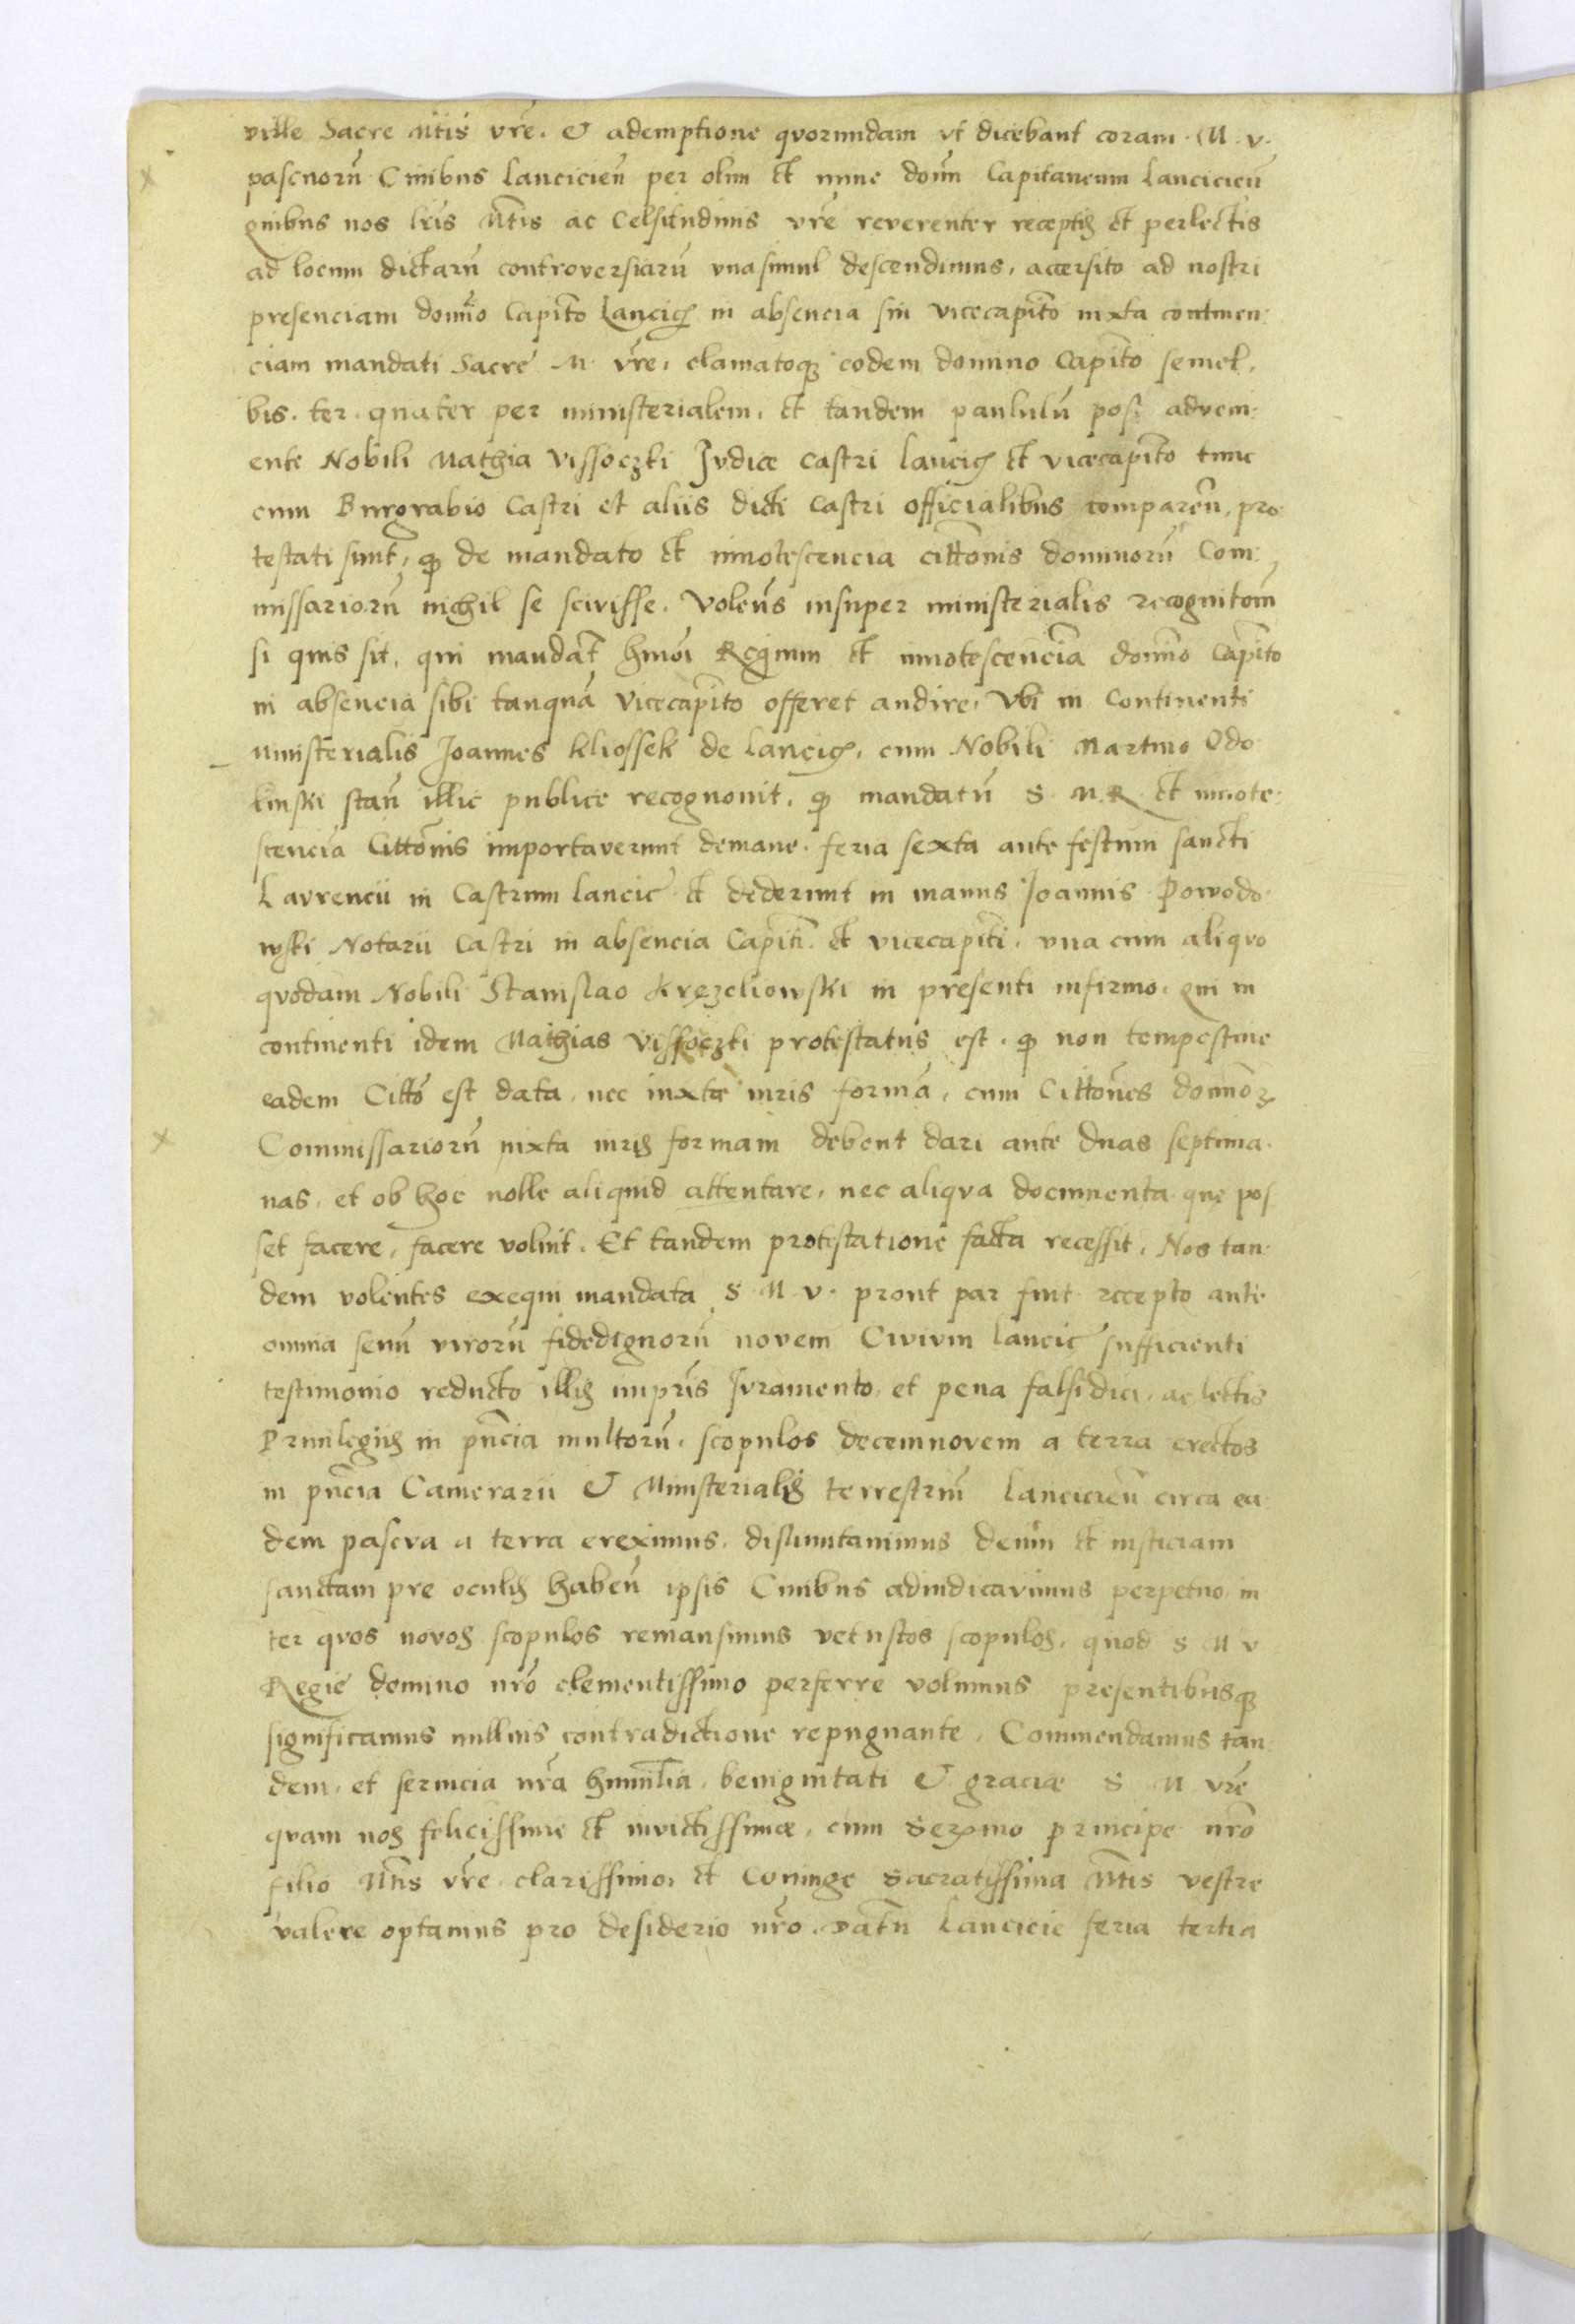 ville Sacre Mtis vrē. & ademptione qvorundam vt dicebant coram. M. v.
pascuorū Civibus Lancicieñ per olim et nunc domñ Capitaneum Lancicieñ
quibus nos lr̃is Mtis ac Celsitudinis vrē reverenter receptis et perlectis
ad locum dictarū controversiarū vna simul descendimus, accersito ad nostri
presenciam domĩo Capito Lancicie in absencia sui vicecapito iuxta continen:
ciam mandati Sacre M. vrē. clamatoque eodem domino Capito semel,
bis. ter. quater per ministerialem, et tandem paululū post adveni:
ente Nobili Mathia Vissoczki Jvdice Castri Lancicie et vicecapito tunc
cum Burgrabio Castri et aliis dicti castri officialibus compareñ, pro:
testati sunt, quod de mandato et innotescencia cittõnis dominorū Com:
missariorū nichil se scivisse. Volens insuper ministerialis recognitom
si quis sit, qui mandat hmõi Regium et innotescencia domĩo Capito
in absencia sibi tanquā Vicecapito offeret audire, Vbi in continenti
ministerialis Joannes Kliossek de Lancicie, cum Nobili Martino Odo
linski stañ illic publice recognouit, quod mandatū S. M. R. et innote:
scenciā Cittõnis importaverunt demane. feria sexta ante festum sancti
Lavrencii in Castrum Lancic et dederunt in manus Joannis Powodo
wski Notarii Castri in absencia Capiti. et vicecapiti. vna cum aliqvo
qvodam Nobili Stanislao Kręzeliowski in presenti infirmo. qui in
continenti idem Mathias Vissoczki protestatus est. quod non tempestiue
eadem Cittõ est data, nec iuxta iuris formā, cum Cittõnes domĩoꝝ
Commissariorū iuxta iuris formam debent dari ante duas septima.
nas. et ob hoc nolle aliquid attentare, nec aliqva documenta que pos
set facere, facere voluit. Et tandem protestatione facta recessit, Nos tan:
dem volentes exequi mandata S. M. v. prout par fuit recepto ante
omnia senū virorū fidedignorū novem Civivm Lancic sufficienti
testimonio reducto illis inpris Jvramento. et pena falsidici. ac lectis
Privilegiis in pñcia multorū. scopulos decemnovem a terra erectos
in pñcia Camerarii & Ministerialis terrestriũ Lancicieñ circa ea
dem pascva a terra ereximus. disiunctavimus deum et iusticiam
sanctam pre oculis habeñ ipsis Civibus adiudicavimus perpetuo. in
ter qvos novos scopulos remansimus vetustos scopulos. quod S M v
Regie domino nrõ clementissimo perferre volumus presentibusque
significamus nullius contradictione repugnante. Commendamus tan:
dem. et servicia nrã humilia. benignitati & gracie S M vrē
qvam nos felicissime et invictissime, cum Serᵐᵒ principe nrõ
filio Mtis vrē clarissimo, et Coniuge Sacratissima Mtis vestre
valere optamus pro desiderio nrõ. Datū Lancicie feria tertia